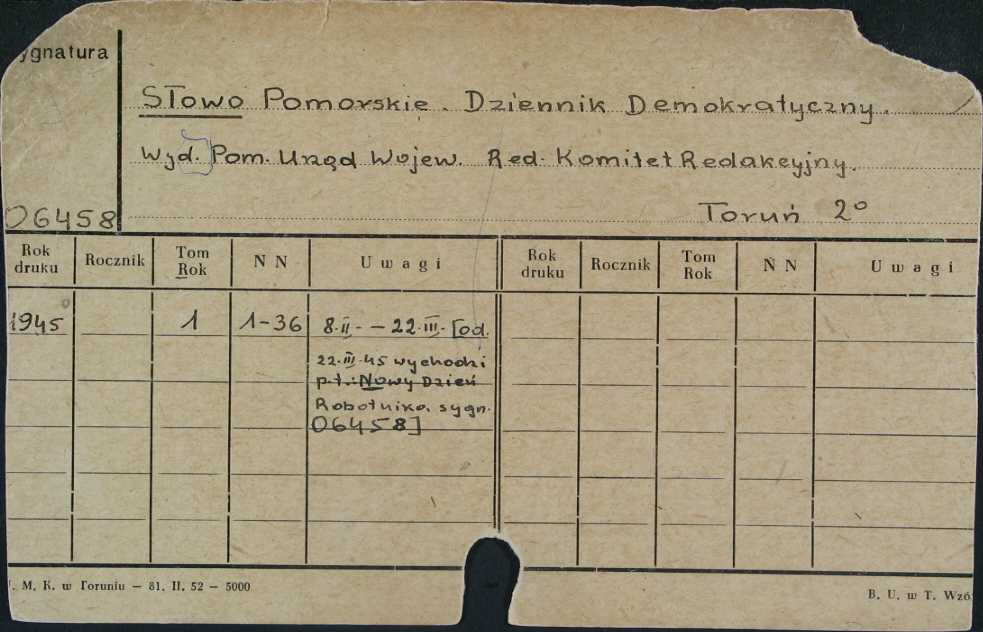 ygnatura
Słowo Pomorskie. Dziennik Demokratyczny.
Wyd. Pom. Urząd Wojew. Red. Komitet Redakcyjny.
06458
Toruń 2°
Rok druku Rocznik Tom Rok N N Uwagi Rok druku Rocznik Tom Rok N N Uwagi
1945 1 1-36 8.II. - 22.III. [od.
22.III.45 wychodzi
p.t.: Nowy Dzień
Robotnika. sygn.
06458]
. M. K. w Toruniu — 81. II. 52 — 5000
B. U. w T. Wzó